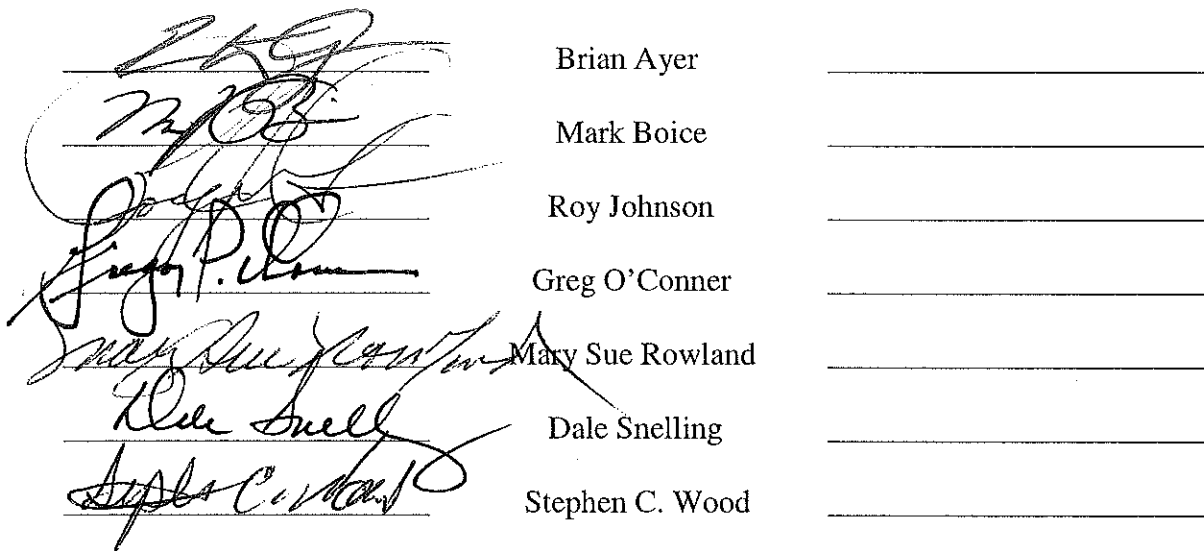 Brian Ayer
Mark Boice
Roy Johnson
Gregory P. O'Conner Greg O'Conner
Mary Sue Rowland Mary Sue Rowland
Dale Snelling Dale Snelling
Stephen C. Wood Stephen C. Wood